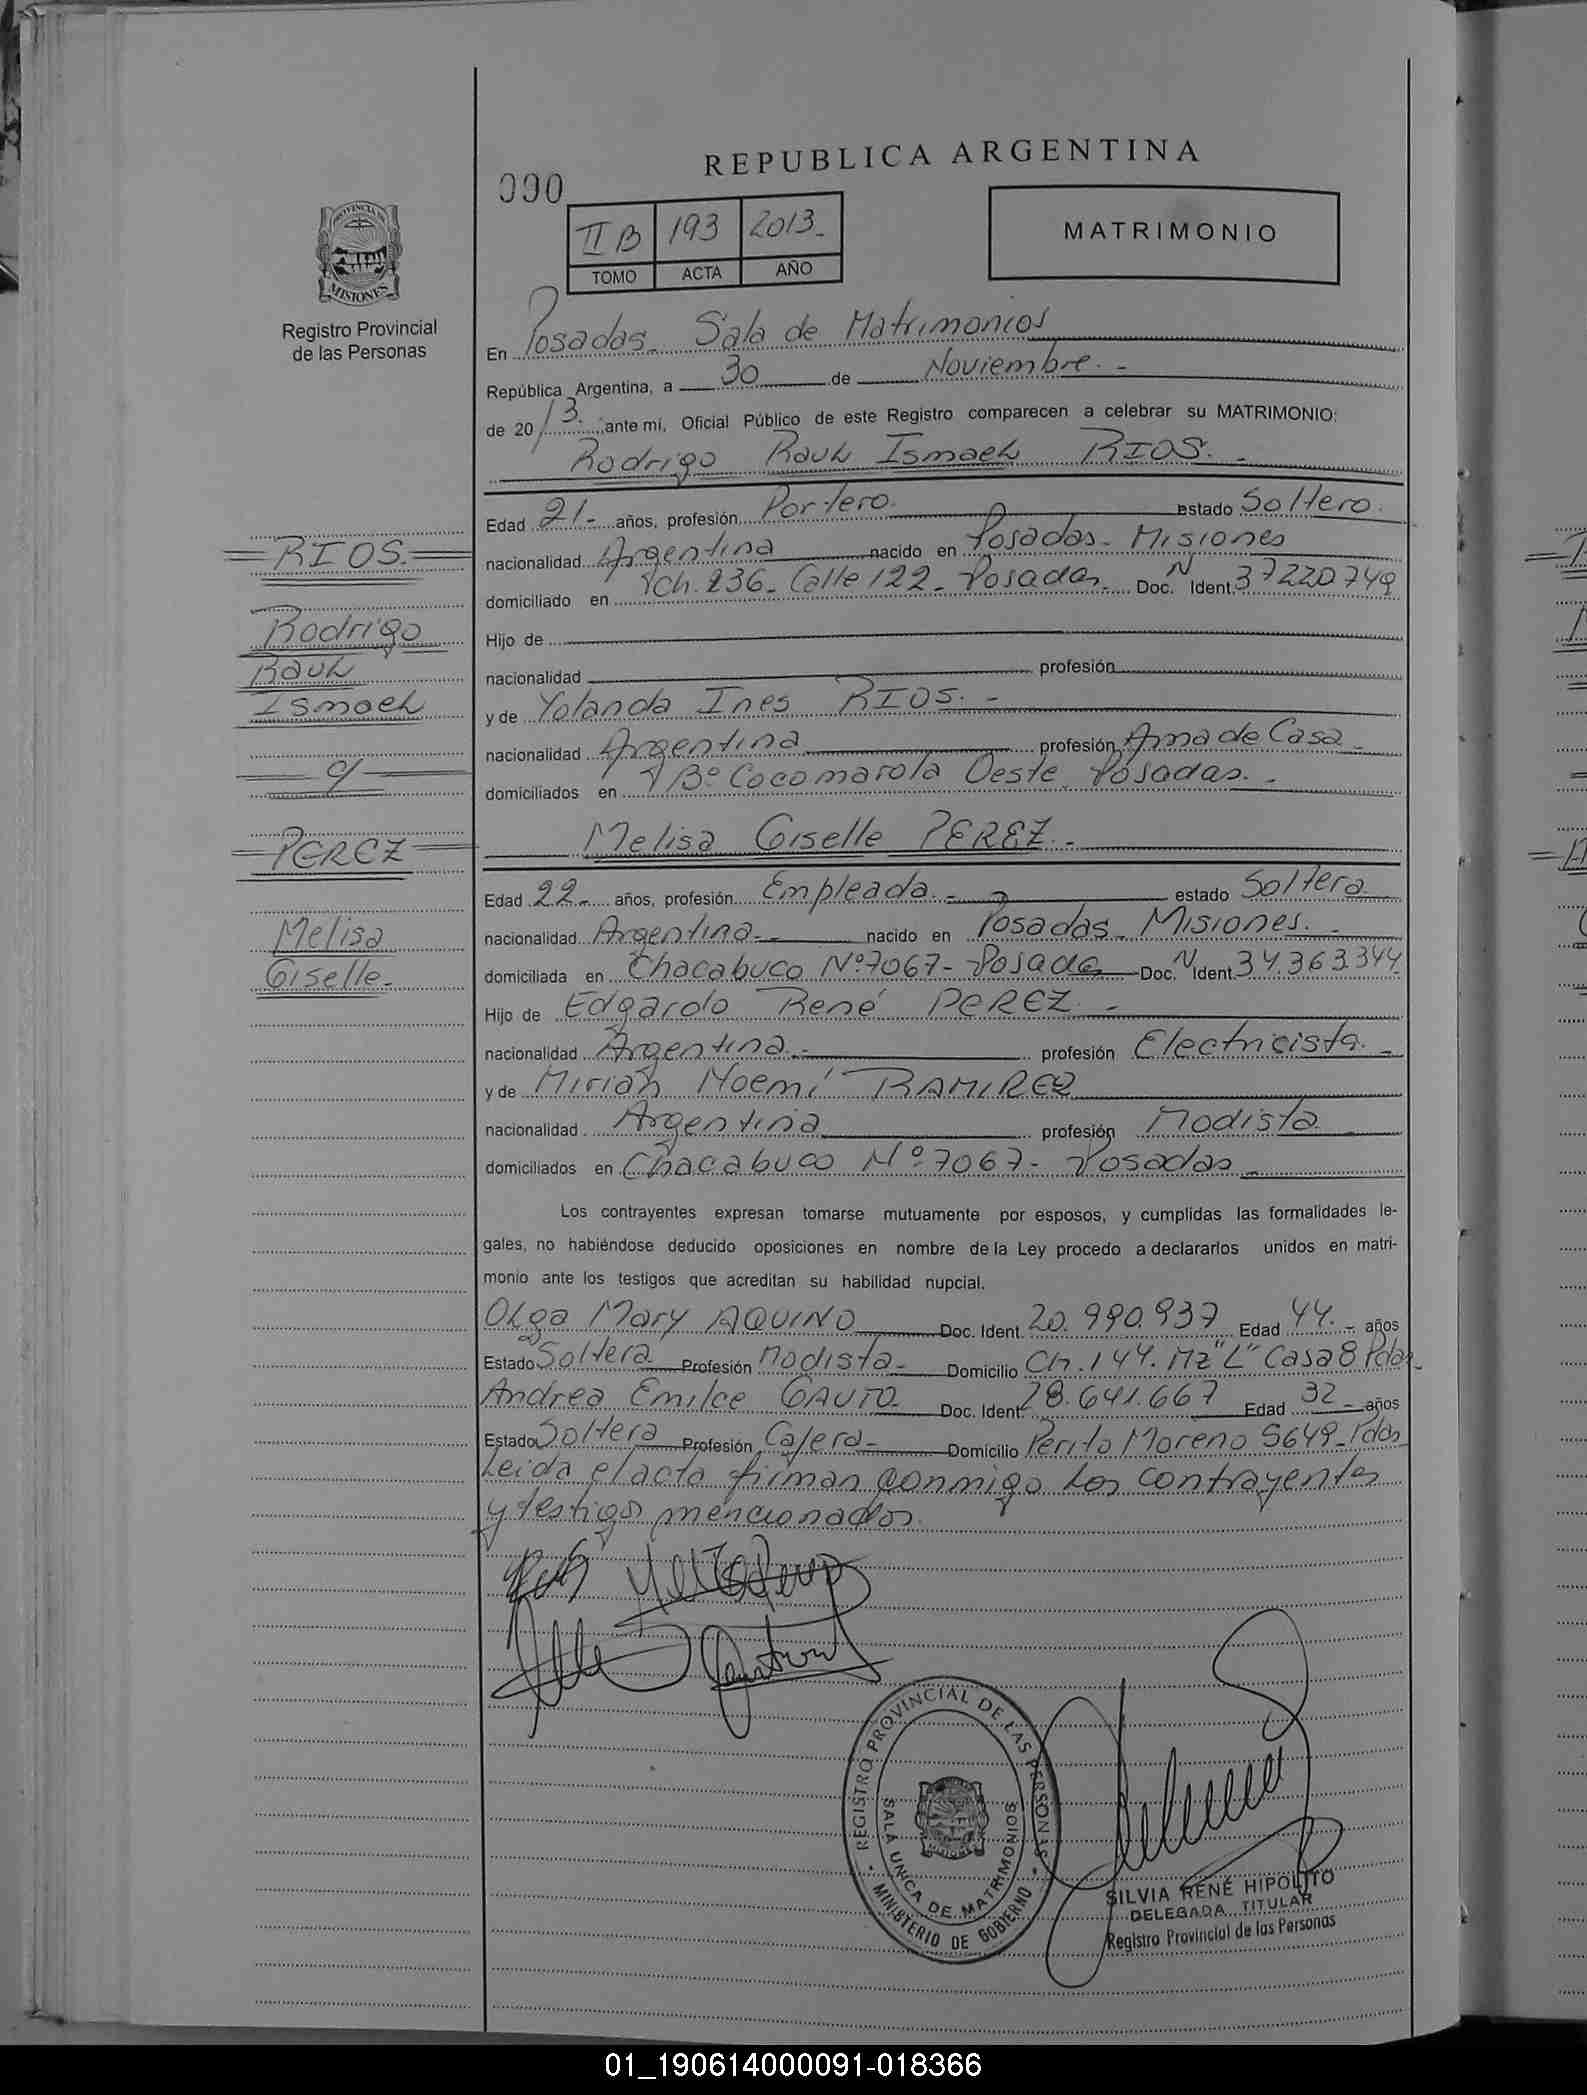 REPUBLICA ARGENTINA
090
II B 193 2013.-
TOMO ACTA AÑO
MATRIMONIO
PROVINCIA DE
MISIONES
Registro Provincial
de las Personas
En Posadas - Sala de Matrimonios
República Argentina, a 30 de Noviembre. -
de 2013. ante mí, Oficial Público de este Registro comparecen a celebrar su MATRIMONIO:
Rodrigo Raul Ismael RIOS. -
Edad 21.- años, profesión Portero. estado Soltero.
nacionalidad Argentina nacido en Posadas - Misiones
domiciliado en Ch. 236 - Calle 122 - Posadas. Doc. N Ident. 37220749
Hijo de
nacionalidad profesión
y de Yolanda Ines RIOS. -
nacionalidad Argentina profesión Ama de Casa -
domiciliados en Bº Cocomarola Oeste Posadas. -
Melisa Giselle PEREZ. -
Edad 22.- años, profesión Empleada. - estado Soltera
nacionalidad Argentina. - nacido en Posadas - Misiones. -
domiciliada en Chacabuco Nº 7067 - Posadas Doc. N Ident. 34.363.344
Hijo de Edgardo René PEREZ. -
nacionalidad Argentina. - profesión Electricista. -
y de Mirian Noemí RAMIREZ
nacionalidad Argentina profesión Modista -
domiciliados en Chacabuco Nº 7067 - Posadas -
Los contrayentes expresan tomarse mutuamente por esposos, y cumplidas las formalidades le-
gales, no habiéndose deducido oposiciones en nombre de la Ley procedo a declararlos unidos en matri-
monio ante los testigos que acreditan su habilidad nupcial.
Olga Mary AQUINO Doc. Ident. 20.990.937 Edad 44. - años
Estado Soltera Profesión Modista - Domicilio Ch. 144. Mz "L" Casa 8 Pdas -
Andrea Emilce GAUTO - Doc. Ident. 28.641.667 Edad 32 - años
Estado Soltera Profesión Cajera - Domicilio Perito Moreno 5649 - Pdas
Leida el acta firman conmigo los contrayentes
y testigos mencionados.
RIOS.
Rodrigo
Raul
Ismael
y
PEREZ
Melisa
Giselle -
REGISTRO PROVINCIAL DE LAS PERSONAS
SALA UNICA DE MATRIMONIOS
MINISTERIO DE GOBIERNO
SILVIA RENÉ HIPOLITO
DELEGADA TITULAR
Registro Provincial de las Personas
01_190614000091-018366